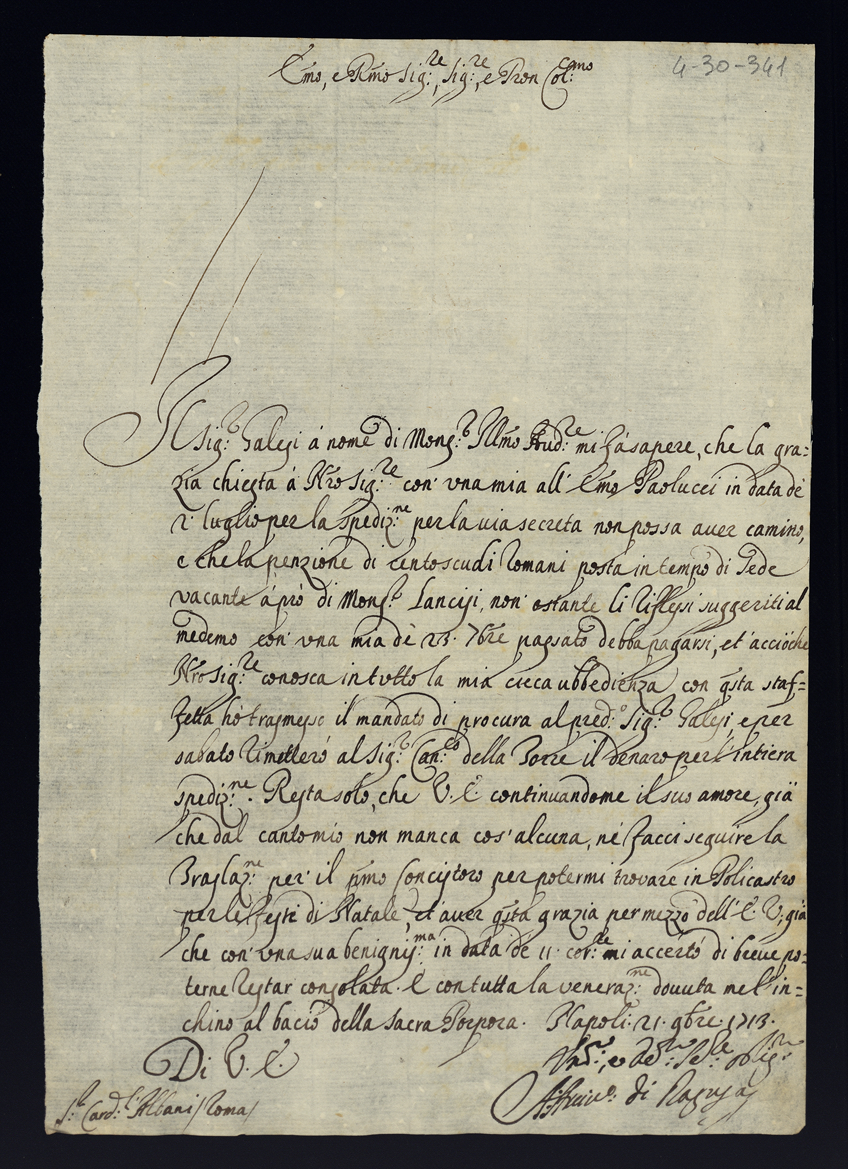 Em̃o, e Rm̃o Sig:re, Sig:re, e Pron Col:mo
4-30-341
Il Sig:r Galesi à nome di Mons:r Illm̃o Aud:re mi fà sapere, che la gra=
zia chiesta à Nr̃o Sig:re con' vna mia all' Em̃o Paolucci in data de
2. luglio per la spediz:ne per la uia secreta non possa auer camino,
e che la penzione di centoscudi Romani posta in tempo di Sede
vacante à prò di Mons:r Lancisi, non' ostante li riflessi suggeriti al
medemo con' vna mia dè 23. 7bre passato debba pagarsi, et' acciòche
Nr̃o Sig:re conosca in tutto la mia cieca ubbedienza, con q̃sta staf=
fetta hò trasmesso il mandato di procura al pred:o Sig:r Galesi, e per
sabato rimetterò al Sig:r Can:co della Torre il denaro per l'intiera
spediz:ne. Resta solo, che V. E. continuandome il suo amore, già
che dal canto mio non manca cos' alcuna, ne facci seguire la
Traslaz:ne per' il p̃mo Concistoro per potermi trovare in Policastro
per le feste di Natale, et' auer q̃sta grazia per mezzo dell' E. V; già
che con' vna sua benigniss:ma in data de 11. cor:te mi accertò di breue po=
terne restar consolata. E con tutta la veneraz:ne douuta me l' in=
chino al bacio della Sacra Porpora. Napoli. 21. 9bre. 1713.
Di V. E.
di Ragusa
S:r Card:l Albani / Roma /